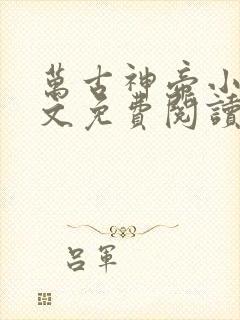 萬古神帝小
文免費閱讀
呂軍